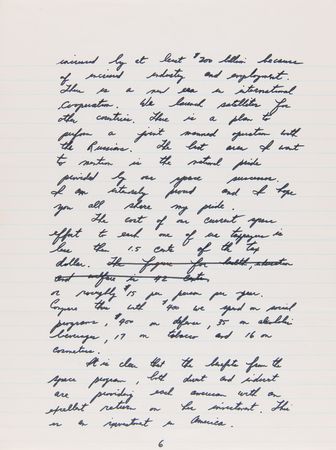 increased by at least $200 billion because
of increased industry and employment.
There is a new era in international
Cooperation. We launch satellites for
other countries. There is a plan to
perform a joint manned operation with
the Russians. The last area I want
to mention is the national pride
provided by our space successes.
I am intensely proud and I hope
you all share my pride.
The cost of our current space
effort to each one of us taxpayers is
less than 1.5 cents of the tax
dollar. The figure for health, education
and welfare is 42 cents
or roughly $15 per person per year.
Compare this with $400 we spend on social
programs, $400 on defense, 35 on alcoholic
beverages, 17 on tobacco and 16 on
cosmetics.
It is clear that the benefits from the
space program, both direct and indirect
are providing each american with an
excellent return on his investment. This
is an investment in America.
6